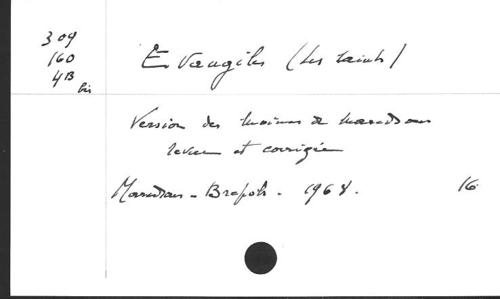 309
160
4B
bis
Evangiles (Les saints)
Version des moines de Maredsous
revue et corrigée
Maredsous - Brepols - 1968.
16